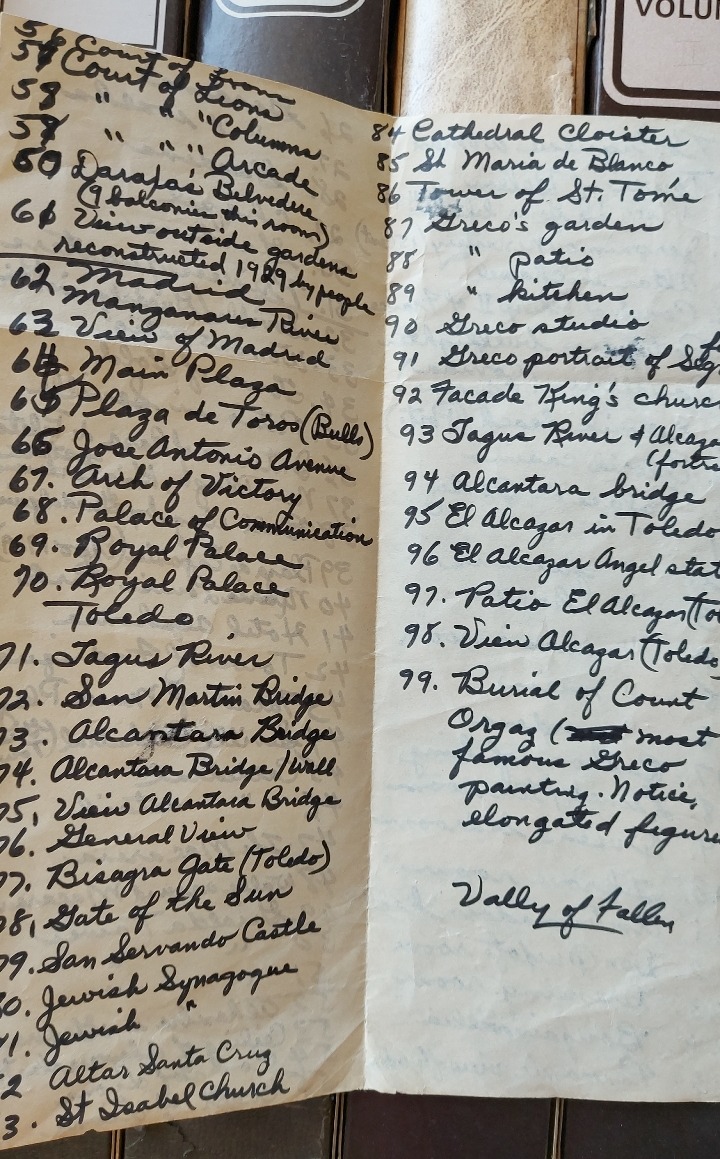 VOLU
56 Court of
57 Court of Lions
58 " " " Columns
59 " " " Arcade
60 Daraja's Belvedere
(9 balconies this room)
61 View outside gardens
reconstructed 1929 by people
Madrid
62 Manzanares River
63 View of Madrid
64 Main Plaza
65 Plaza de Toros (Bulls)
66 Jose Antonio Avenue
67. Arch of Victory
68. Palace of Communication
69. Royal Palace
70. Royal Palace
Toledo
71. Tagus River
72. San Martin Bridge
73. Alcantara Bridge
74. Alcantara Bridge/Wall
75, View Alcantara Bridge
76. General View
77. Bisagra Gate (Toledo)
78, Gate of the Sun
79. San Servando Castle
80. Jewish Synagogue
1. Jewish "
2 Altar Santa Cruz
3. St Isabel Church
84 Cathedral Cloister
85 St Maria de Blanco
86 Tower of St. Tomé
87 Greco's garden
88 " patio
89 " kitchen
90 Greco studio
91 Greco portrait of
92 Facade King's churc
93 Tagus River & Alcaza
(fortre
94 Alcantara bridge
95 El Alcazar in Toledo
96 El Alcazar Angel stat
97. Patio El Alcazar (To
98. View Alcazar (Toledo
99. Burial of Count
Orgaz ( most
famous Greco
painting. Notice,
elongated figure
Vally of Fallen